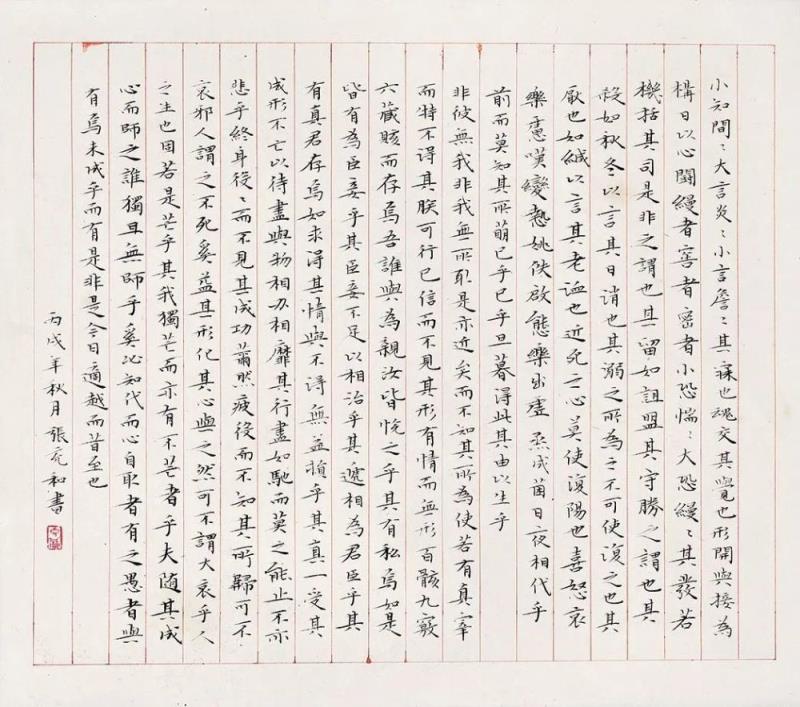 小知間〻大言炎〻小言詹〻其寐也魂交其覺也形開與接為
構日以心鬭縵者窖者密者小恐惴〻大恐縵〻其發若
機栝其司是非之謂也其留如詛盟其守勝之謂也其
殺如秋冬以言其日消也其溺之所為之不可使復之也其
厭也如緘以言其老洫也近死之心莫使復陽也喜怒哀
樂慮嘆變慹姚佚啟態樂出虛烝成菌日夜相代乎
前而莫知其所萌已乎已乎旦暮得此其由以生乎
非彼無我非我無所取是亦近矣而不知其所為使若有真宰
而特不得其朕可行已信而不見其形有情而無形百骸九竅
六藏賅而存焉吾誰與為親汝皆悅之乎其有私焉如是
皆有為臣妾乎其臣妾不足以相治乎其遞相為君臣乎其
有真君存焉如求得其情與不得無益損乎其真一受其
成形不亡以待盡與物相刃相靡其行盡如馳而莫之能止不亦
悲乎終身役〻而不見其成功然疲役而不知其所歸可不
哀邪人謂之不死奚益其形化其心與之然可不謂大哀乎人
之生也固若是芒乎其我獨芒而亦有不芒者乎夫隨其成
心而師之誰獨且無師乎奚必知代而心自取者有之愚者與
有焉未成乎而有是非是今日適越而昔至也
丙戌年秋月張亮和書